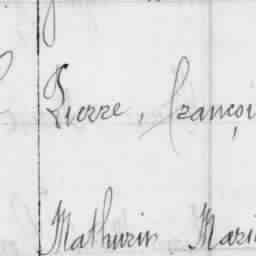 Pierre, françoi
Mathurin Marie